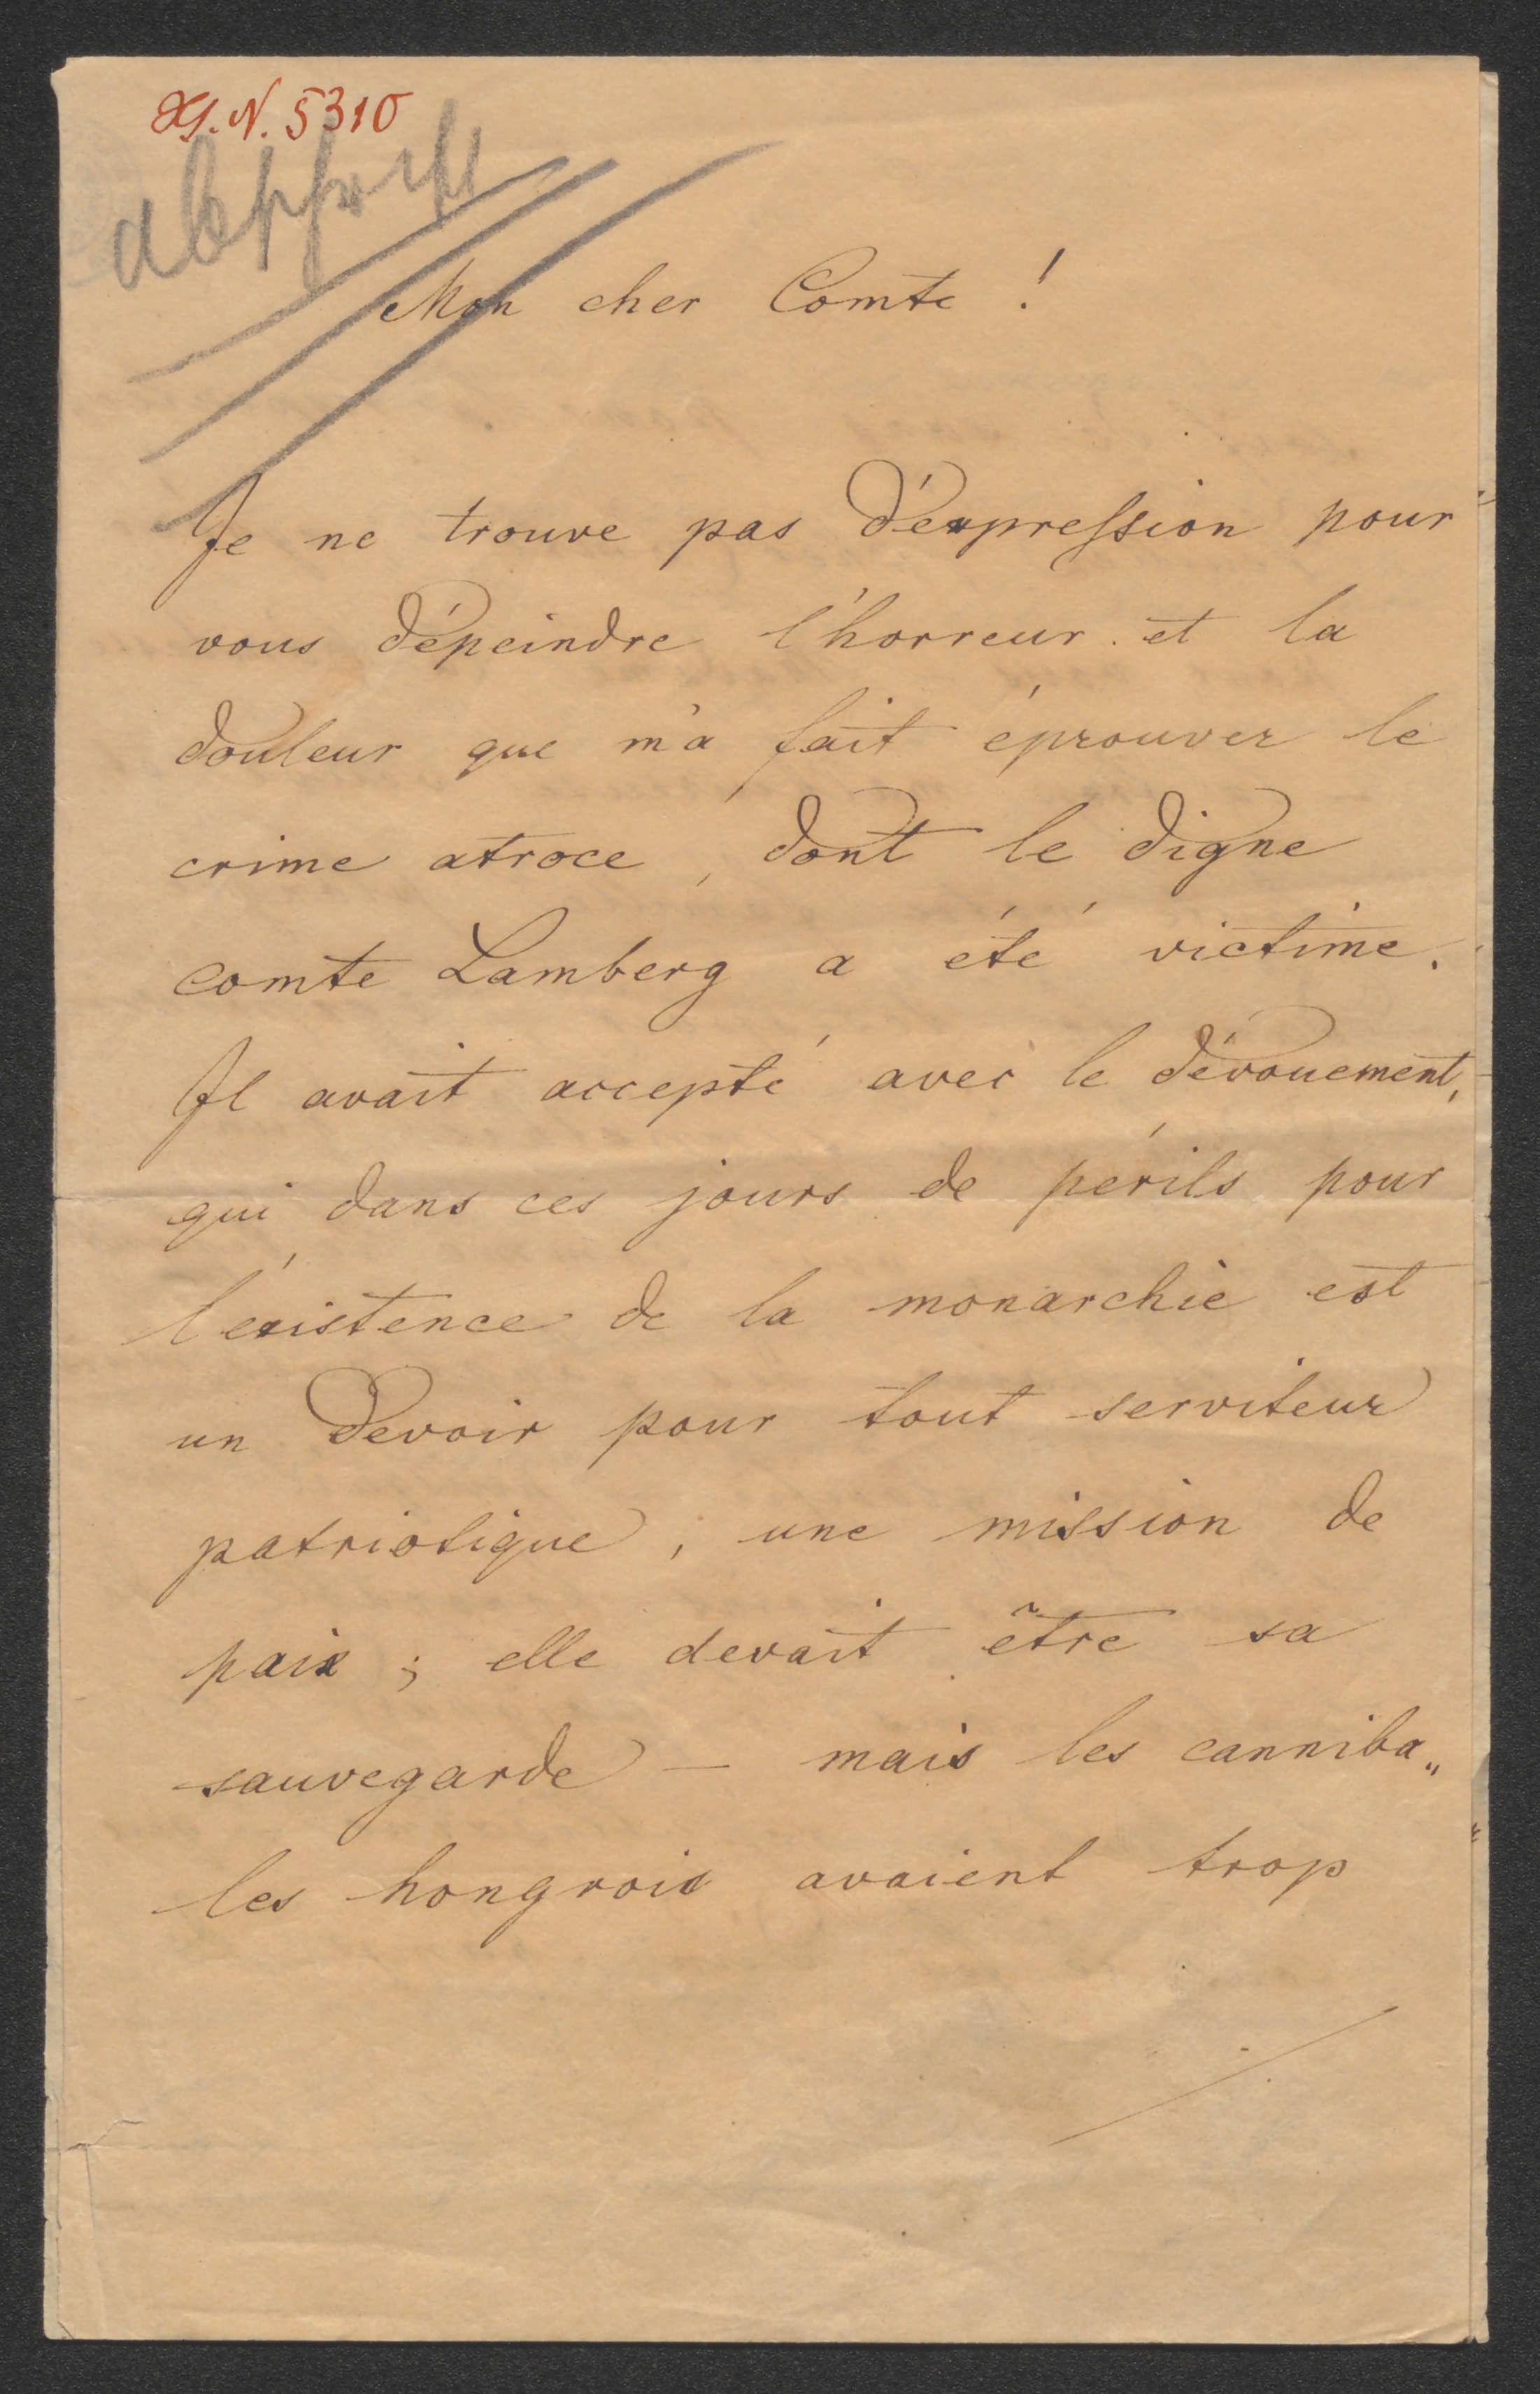 H.I.N. 5310
Mon cher Comte !
Je ne trouve pas d'expression pour
vous dépeindre l'horreur et la
douleur que m'a fait éprouver le
crime atroce, dont le digne
comte Lamberg a été victime.
Il avait accepté avec le dévouement,
qui dans ces jours de périls pour
l'existence de la monarchie est
un devoir pour tout serviteur
patriotique, une mission de
paix ; elle devait être sa
sauvegarde – mais les canniba„
les hongrois avaient trop